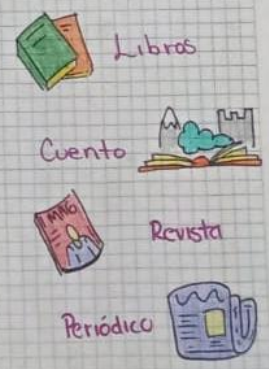 Libros
Cuento
MAG
Revista
Periódico